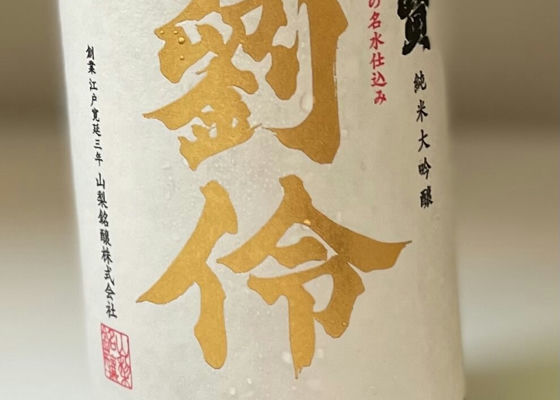 賢
純米大吟醸
の名水仕込み
劉伶
創業 江戸寛延三年 山梨銘醸株式会社